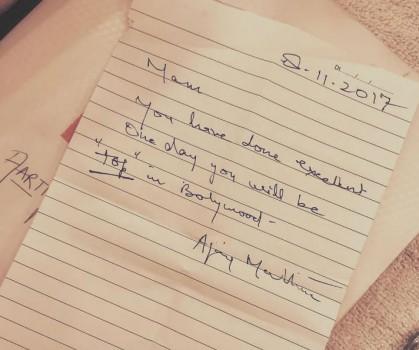 8.11.2017
Mam
You have done excellent
One day you will be
"Top" in Bollywood-
Ajay